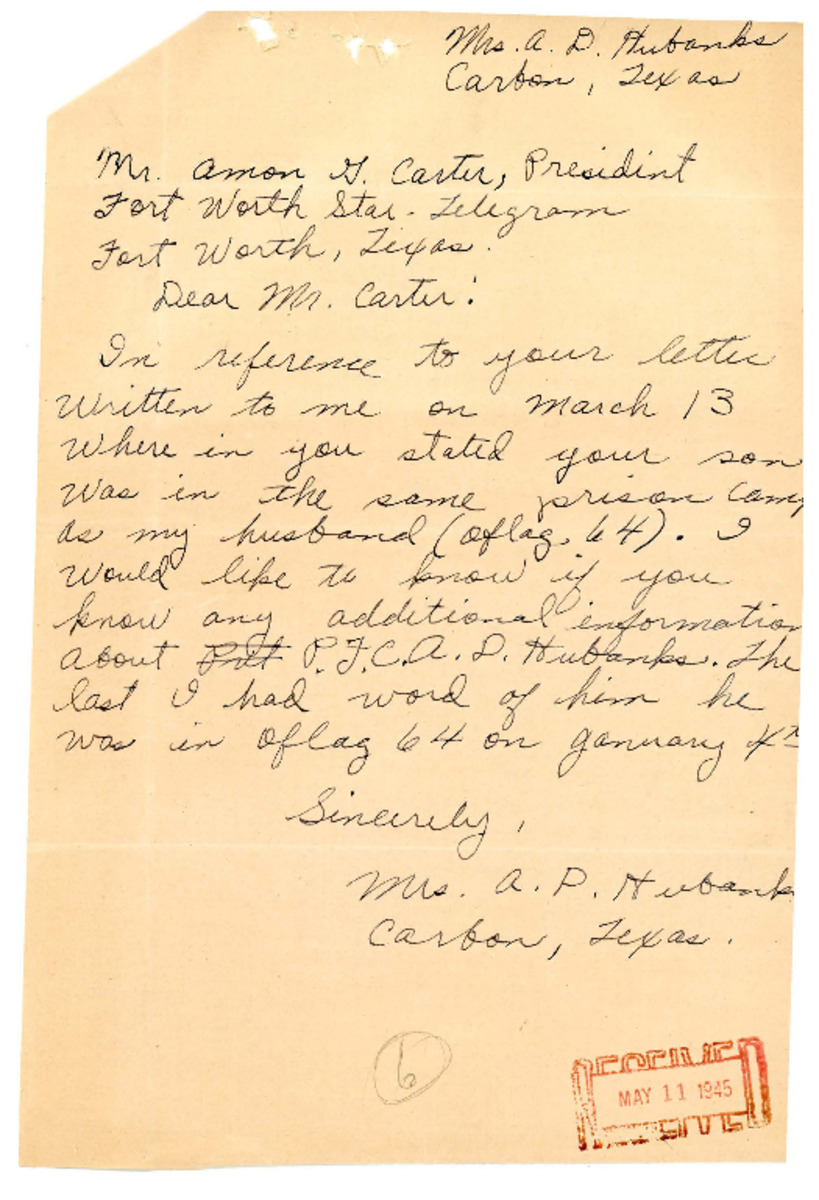 Mrs. A. D. Hubanks
Carbon, Texas
Mr. Amon G. Carter, Presidint
Fort Worth Star-Telegram
Fort Worth, Texas.
Dear Mr. Carter:
In reference to your letter
written to me on March 13
where in you stated your son
was in the same prison camp
as my husband (Oflag. 64). I
would like to know if you
know any additional information
about Pvt P.F.C. A. D. Hubanks. The
last I had word of him he
was in Oflag 64 on January 4th
Sincerely,
Mrs. A. D. Hubanks
Carbon, Texas.
6
RECEIVED
MAY 11 1945